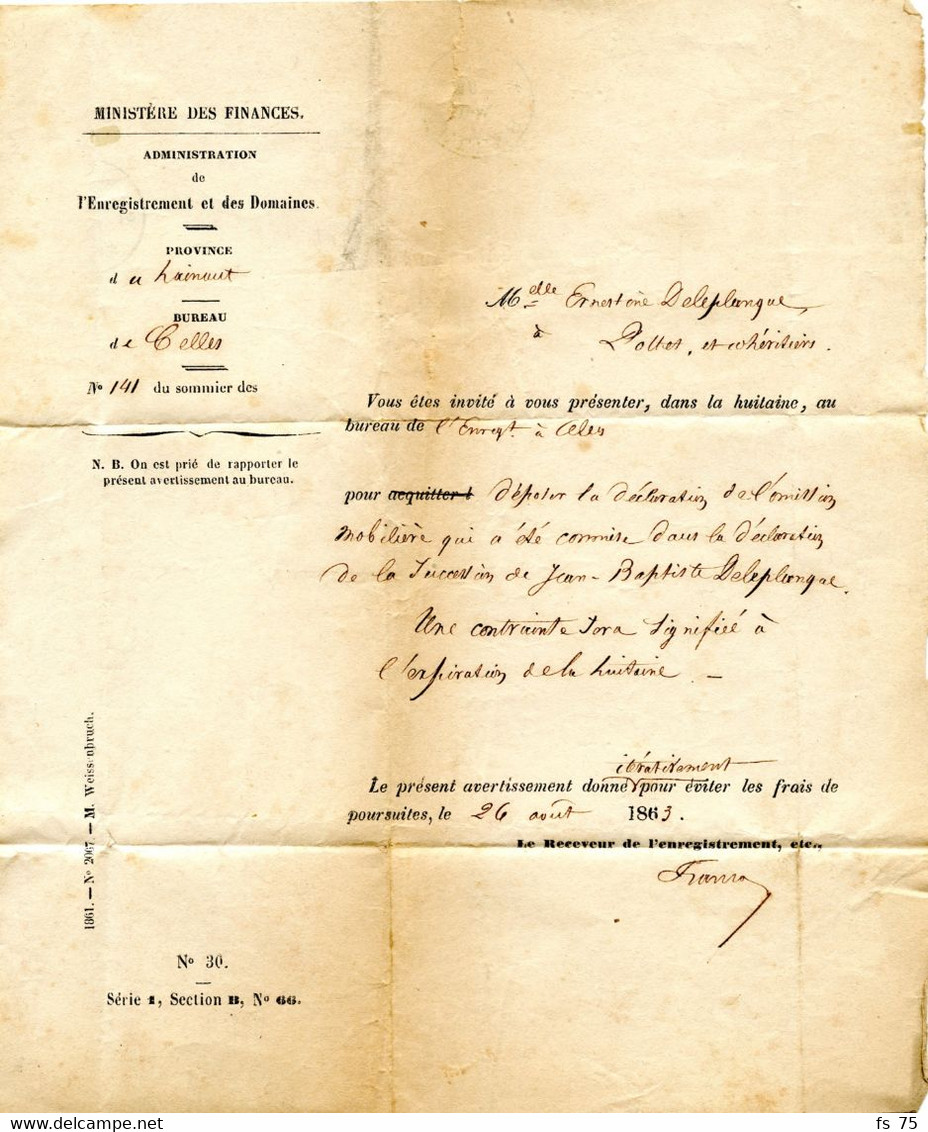 MINISTÈRE DES FINANCES.
ADMINISTRATION
de
l'Enregistrement et des Domaines.
PROVINCE
du hainaut
BUREAU
de Celles
No 141 du sommier des
N. B. On est prié de rapporter le
présent avertissement au bureau.
Melle Ernestine Deleplanque
à Pottes, et cohéritiers.
Vous êtes invité à vous présenter, dans la huitaine, au
bureau de l'Enregt. à Celles
pour acquitter l déposer la déclaration de l'omission
mobilière qui a été commise dans la déclaration
de la succession de Jean-Baptiste Deleplanque.
Une contrainte sera signifiée à
l'expiration de la huitaine. —
itérativement
Le présent avertissement donné pour éviter les frais de
poursuites, le 26 août 1863.
Le Receveur de l'enregistrement, etc.,
1861. — No 2067. — M. Weissenbruch.
No 30.
Série 1, Section B, No 66.
fs 75